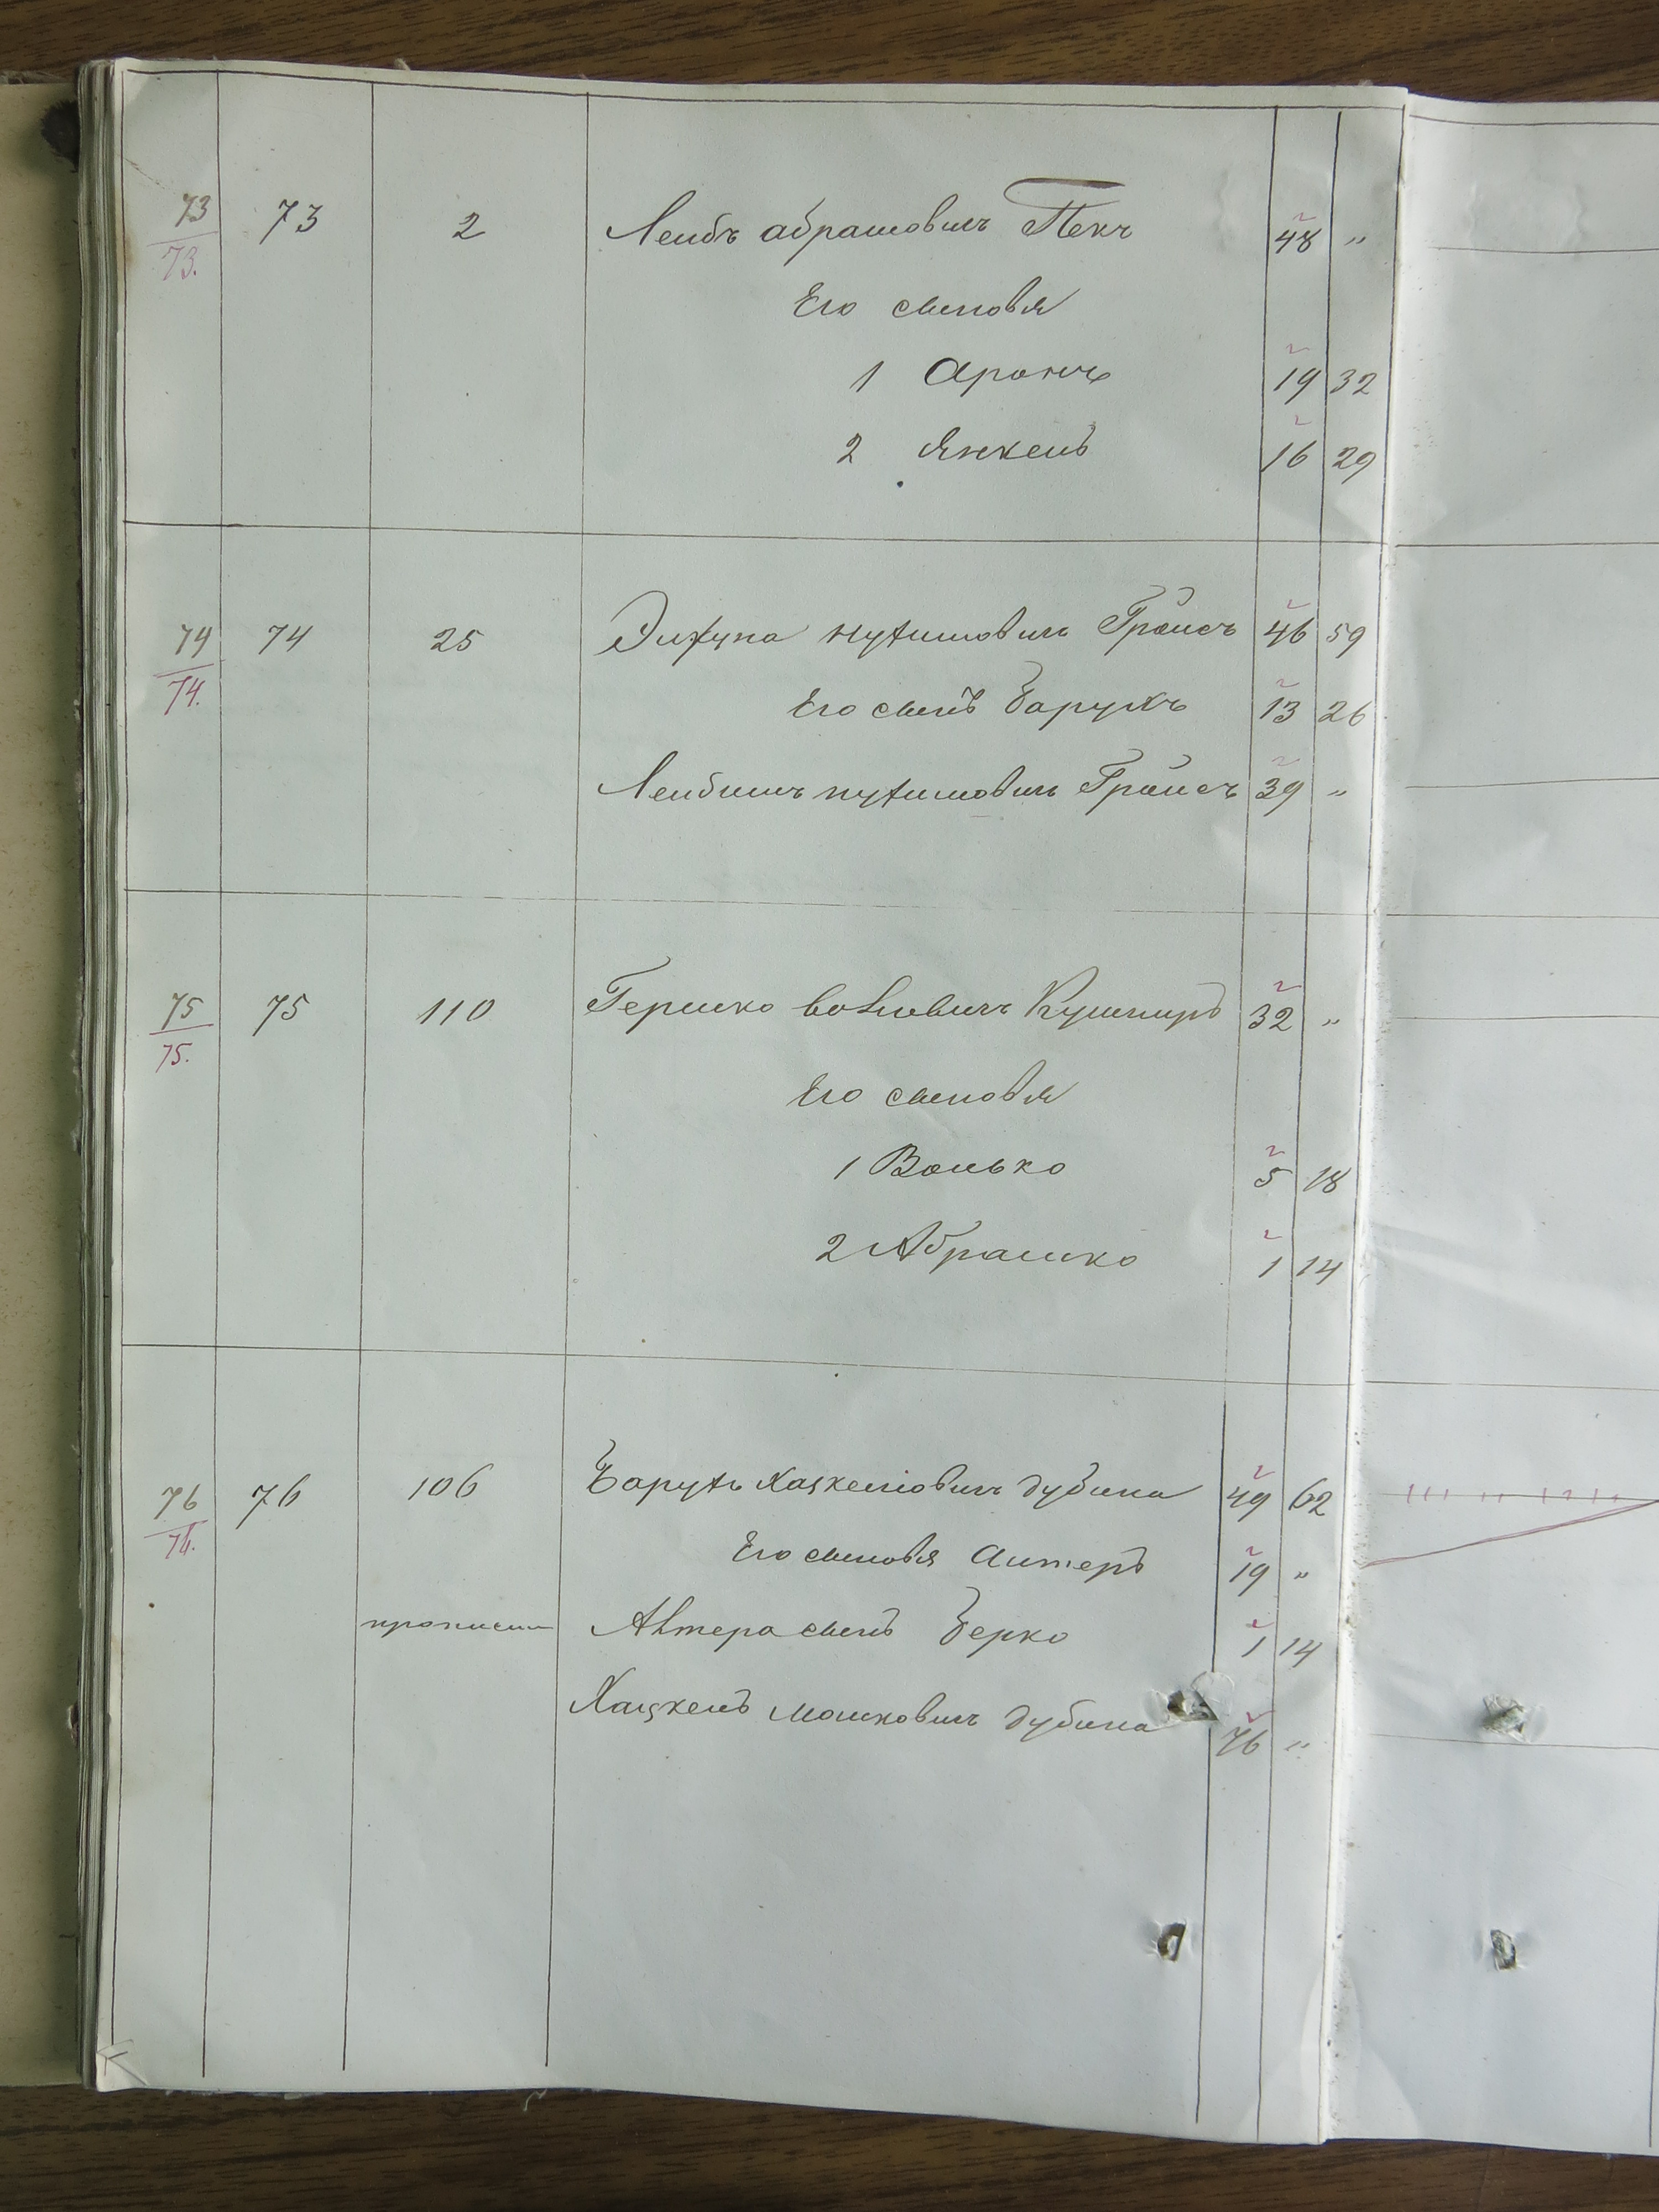 73 73 2 Лейбъ абрамовичъ Пекъ 48 "
73.
Его сыновья
1 Аронъ 19 32
2 Янкель 16 29
74 74 25 Нухимовичъ Грайсъ 46 59
74.
Его сынъ Барухъ 13 26
Лейбишъ нухимовичъ Грайсъ 39 "
75 75 110 Гершко волковичъ Кушниръ 32 "
75.
Его сыновья
1 Волько 5 18
2 Абрашко 1 14
76 76 106 Барухъ Хацкелiовичъ дубина 49 62
76.
Его сыновья Алтеръ 19 "
Алтера сынъ Берко 1 14
Хацкель Мошковичъ дубина 76 "